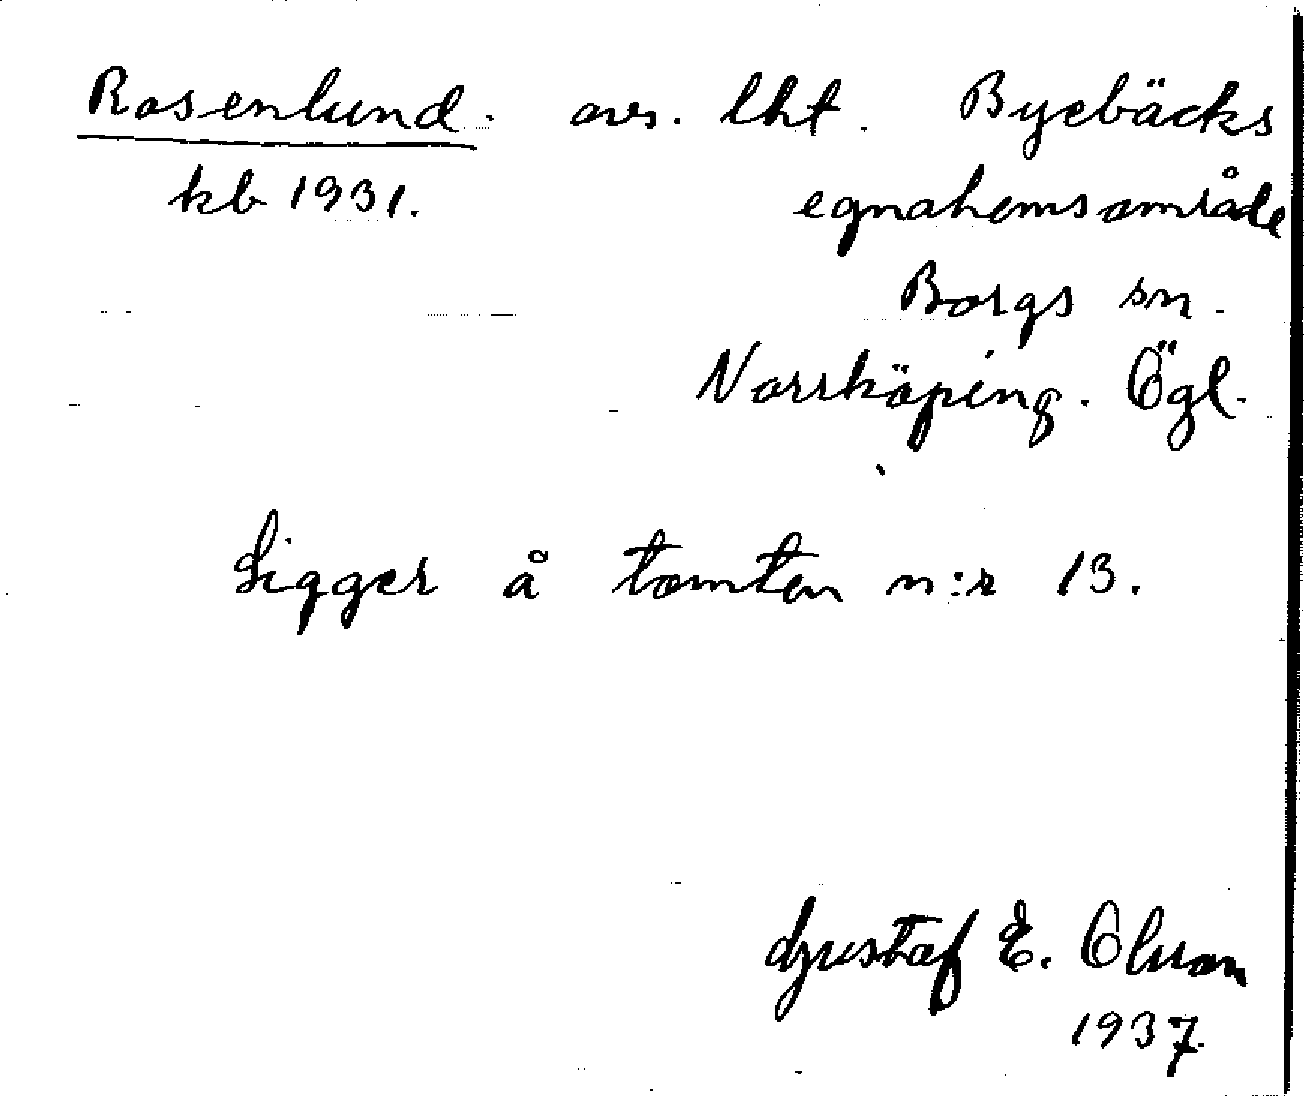 Rosenlund. avs. lht. Byebäcks
kb 1931. egnahemsområde
Borgs sn.
Norrköping. Ögl.
Ligger å tomten n:r 13.
Gustaf E. Olson
1937.